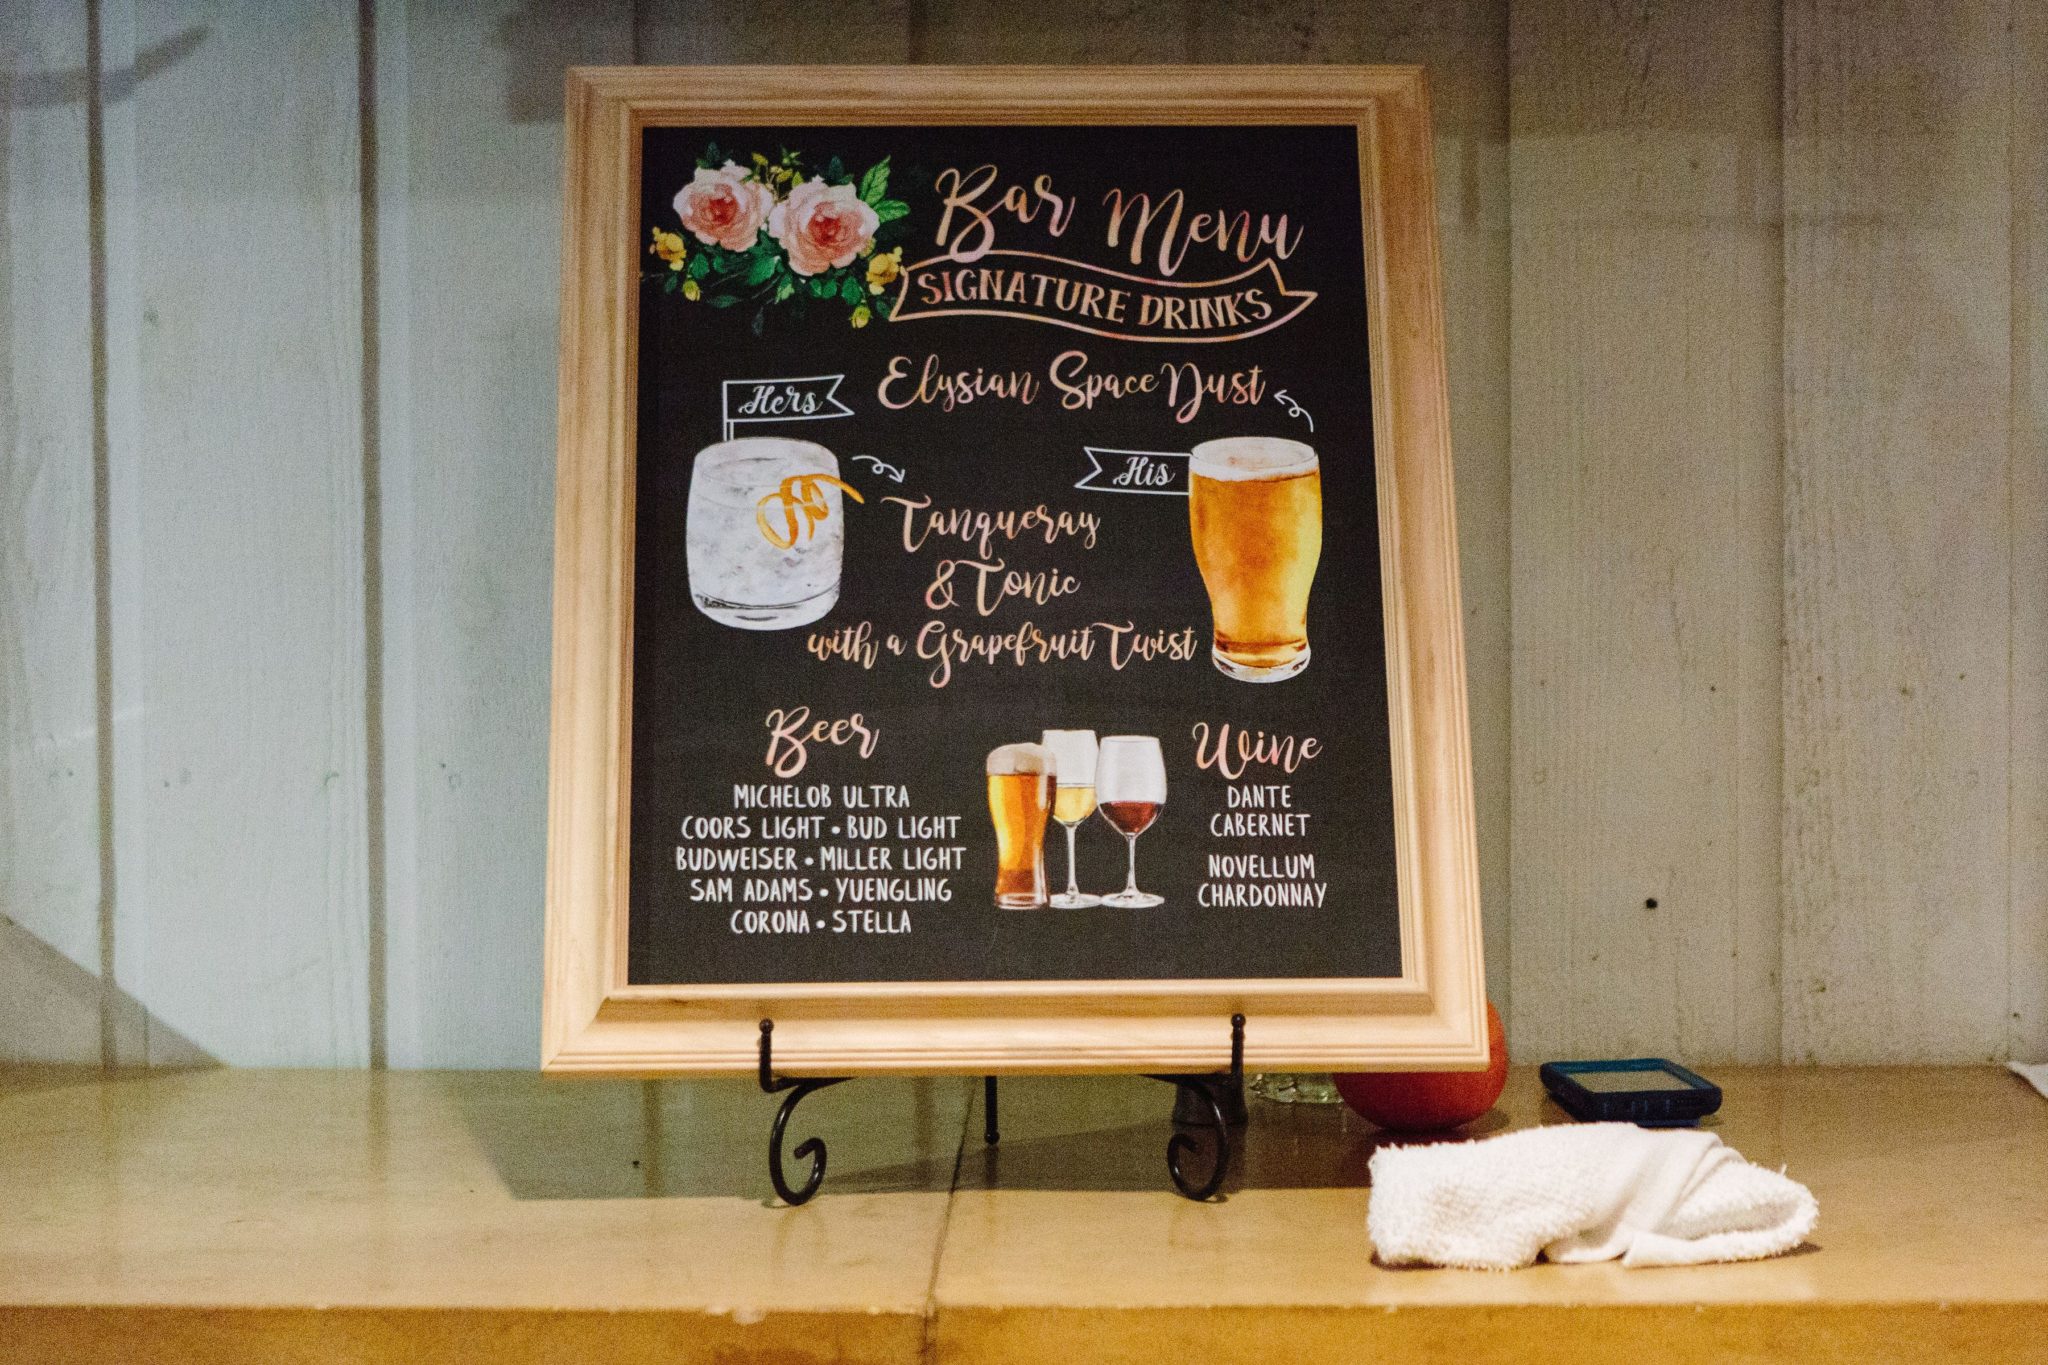 Bar Menu
SIGNATURE DRINKS
Elysian Space Dust
Hers
His
Tanqueray
& Tonic
with a Grapefruit Twist
Beer
MICHELOB ULTRA
COORS LIGHT • BUD LIGHT
BUDWEISER • MILLER LIGHT
SAM ADAMS • YUENGLING
CORONA • STELLA
Wine
DANTE
CABERNET
NOVELLUM
CHARDONNAY